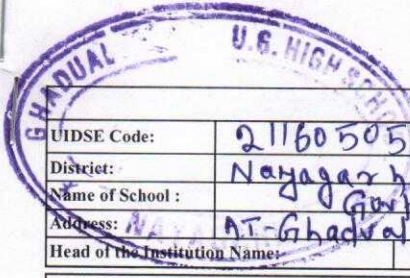 GHADUAL U.G. HIGH SCHO
UIDSE Code: 21160505
District: Nayagarh
Name of School : Govt
Address: AT-Ghadual
NAYA
Head of the Institution Name: